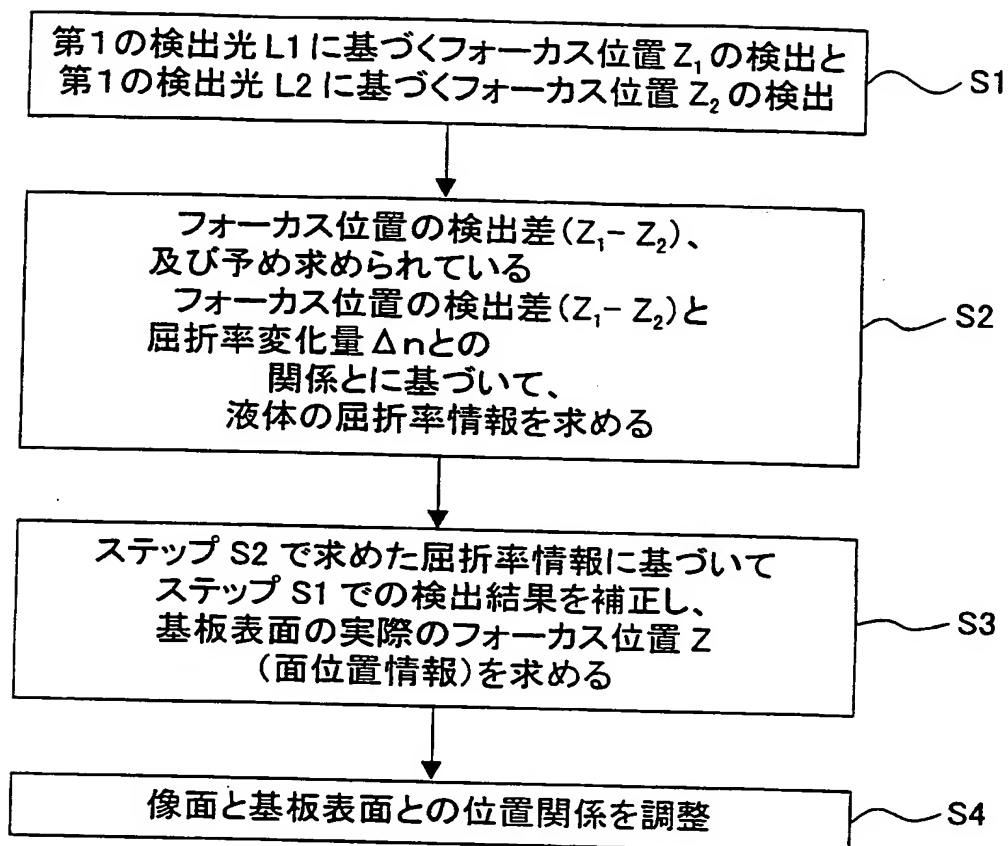 第1の検出光L1に基づくフォーカス位置Z₁の検出と
第1の検出光L2に基づくフォーカス位置Z₂の検出
S1
フォーカス位置の検出差(Z₁- Z₂)、
及び予め求められている
フォーカス位置の検出差(Z₁- Z₂)と
屈折率変化量Δnとの
関係とに基づいて、
液体の屈折率情報を求める
S2
ステップS2で求めた屈折率情報に基づいて
ステップS1での検出結果を補正し、
基板表面の実際のフォーカス位置Z
(面位置情報)を求める
S3
像面と基板表面との位置関係を調整
S4